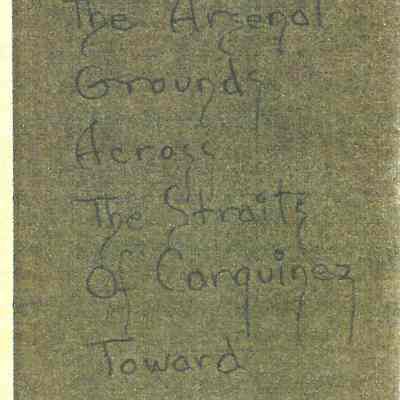 The Arsenal
Grounds
Across
The Straits
Of Carquinez
Toward